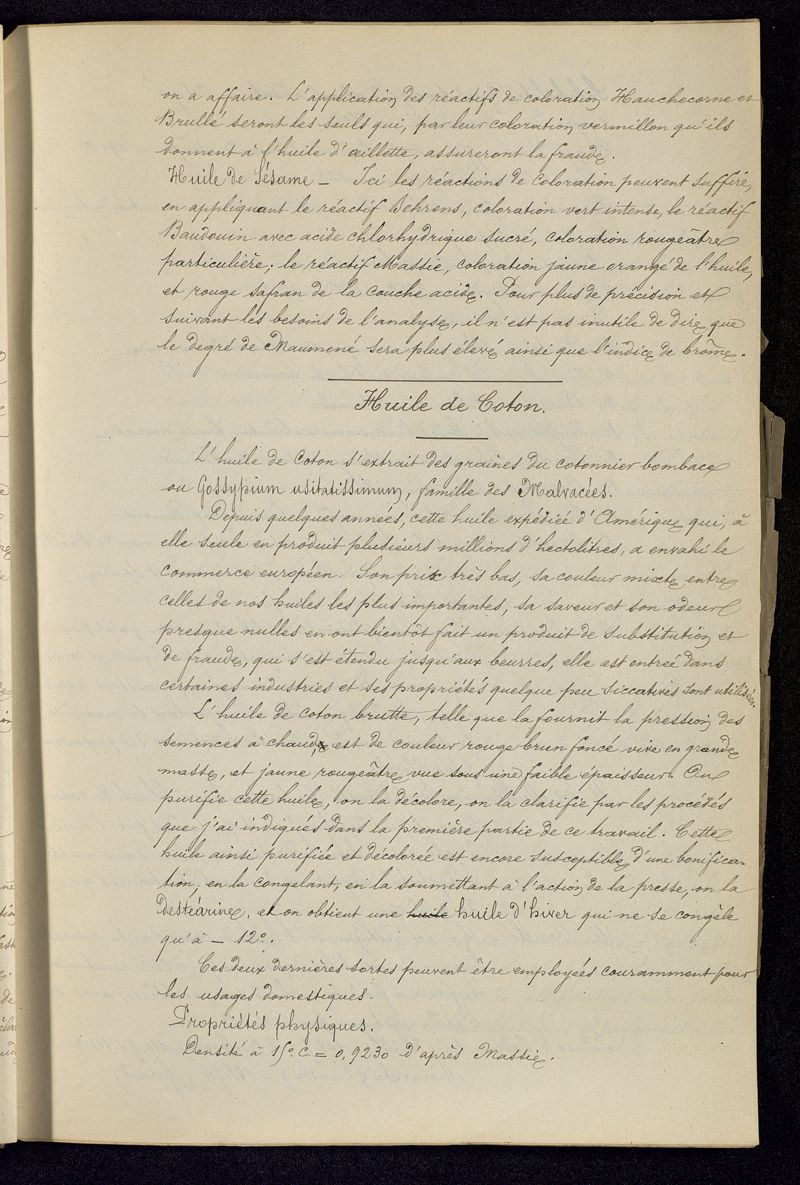 on a affaire. L'application des réactifs de coloration Hauchecorne et
Brullé seront les seuls qui, par leur coloration vermillon qu'ils
donnent à l'huile d'œillette, assureront la fraude.
Huile de Sésame _ Ici les réactions de coloration peuvent suffire,
en appliquant le réactif Behrens, coloration vert intense, le réactif
Baudouin avec acide chlorhydrique sucré, coloration rougeâtre
particulière; le réactif Massie, coloration jaune orangé de l'huile,
et rouge safran de la couche acide. Pour plus de précision et
suivant les besoins de l'analyse, il n'est pas inutile de dire que
le degré de Maumené sera plus élevé ainsi que l'indice de brôme.
Huile de Coton.
L'huile de coton s'extrait des graines du cotonnier bombace
ou Gossypium usitatissimum, famille des Malvacées.
Depuis quelques années, cette huile expédiée d'Amérique qui, à
elle seule en produit plusieurs millions d'hectolitres, a envahi le
commerce européen. Son prix très bas, sa couleur mixte entre
celles de nos huiles les plus importantes, sa saveur et son odeur
presque nulles en ont bientôt fait un produit de substitution et
de fraude, qui s'est étendu jusqu'aux beurres, elle est entrée dans
certaines industries et ses propriétés quelque peu siccatives sont utilisées.
L'huile de coton brutte, telle que la fournit la pression des
semences à chaud, est de couleur rouge brun foncé vive en grande
masse, et jaune rougeâtre vue sous une faible épaisseur. On
purifie cette huile, on la décolore, on la clarifie par les procédés
que j'ai indiqués dans la première partie de ce travail. Cette
huile ainsi purifiée et décolorée est encore susceptible d'une bonifica-
tion; en la congelant, en la soumettant à l'action de la presse, on la
destéarine, et on obtient une huile huile d'hiver qui ne se congèle
qu'à - 12°.
Ces deux dernières sortes peuvent être employées couramment pour
les usages domestiques.
Propriétés physiques.
Densité à 15° c. = 0,9230 d'après Massie.